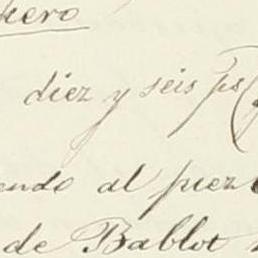 kero
diez y seis ps (
endo al puez
de Bablot